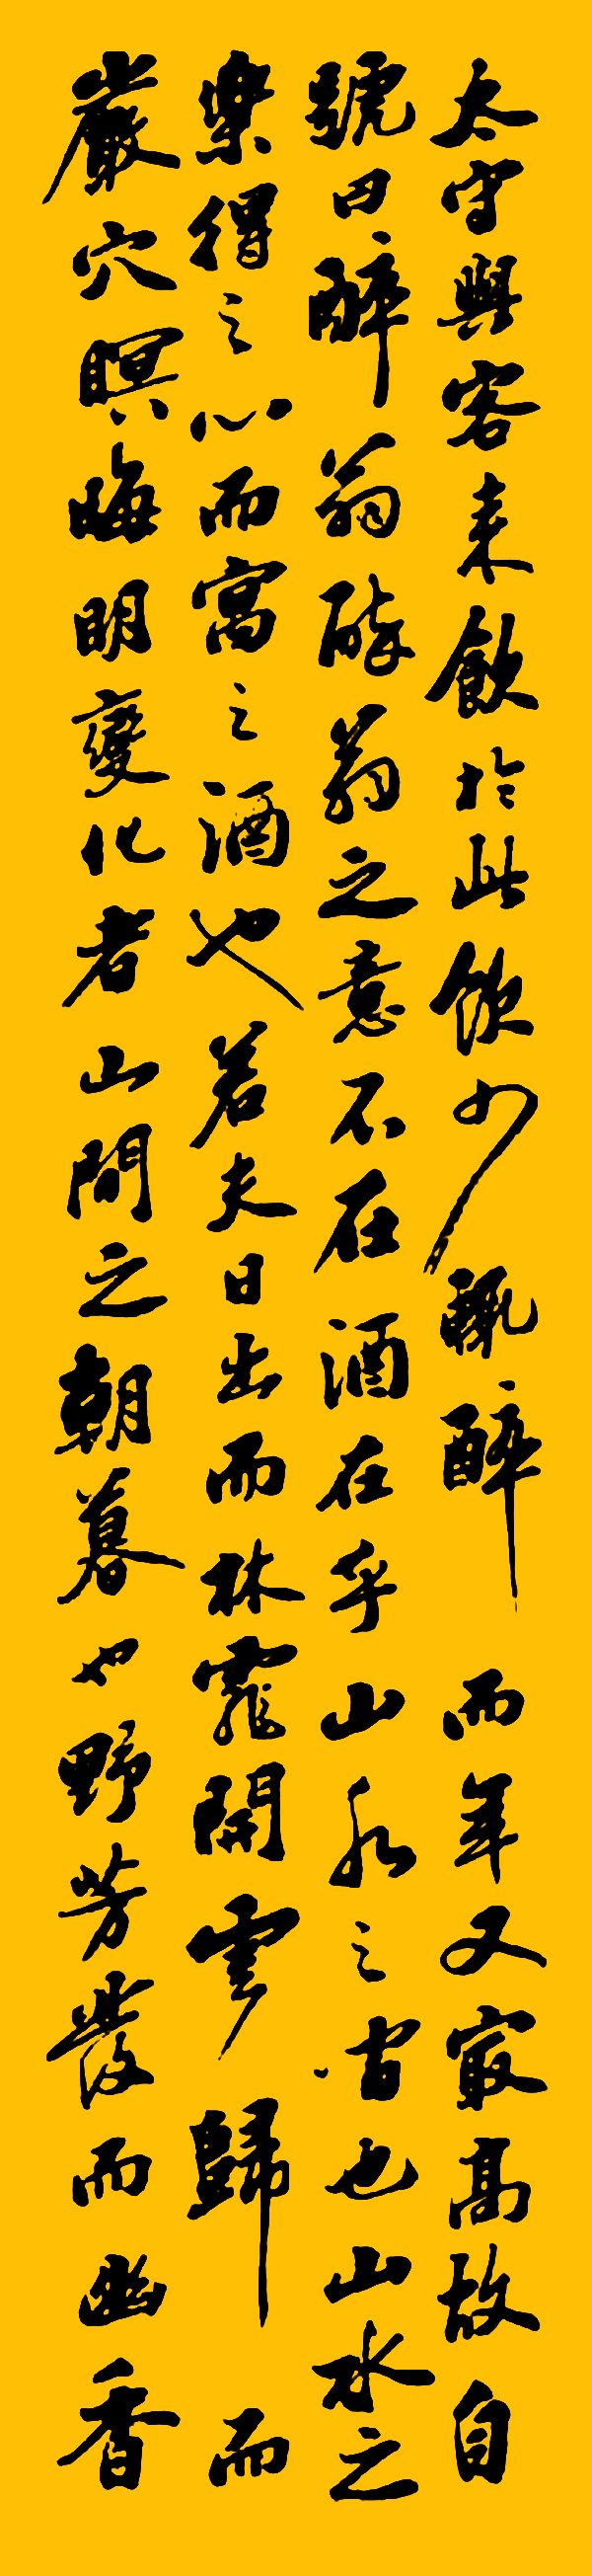 太守與客来飲於此飲少輒醉而年又最高故自
號曰醉翁醉翁之意不在酒在乎山水之間也山水之
樂得之心而寓之酒也若夫日出而林霏開雲歸而
巖穴暝晦明變化者山間之朝暮也野芳發而幽香